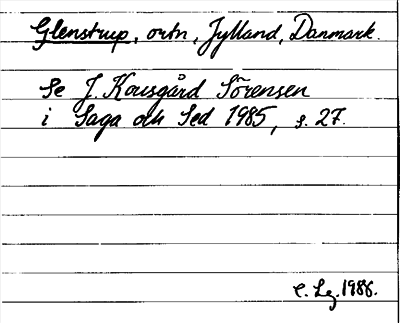 Glenstrup, ortn, Jylland, Danmark.
Se J. Kousgård Sörensen
i Saga och Sed 1985, s. 27.
C. Lg. 1986.